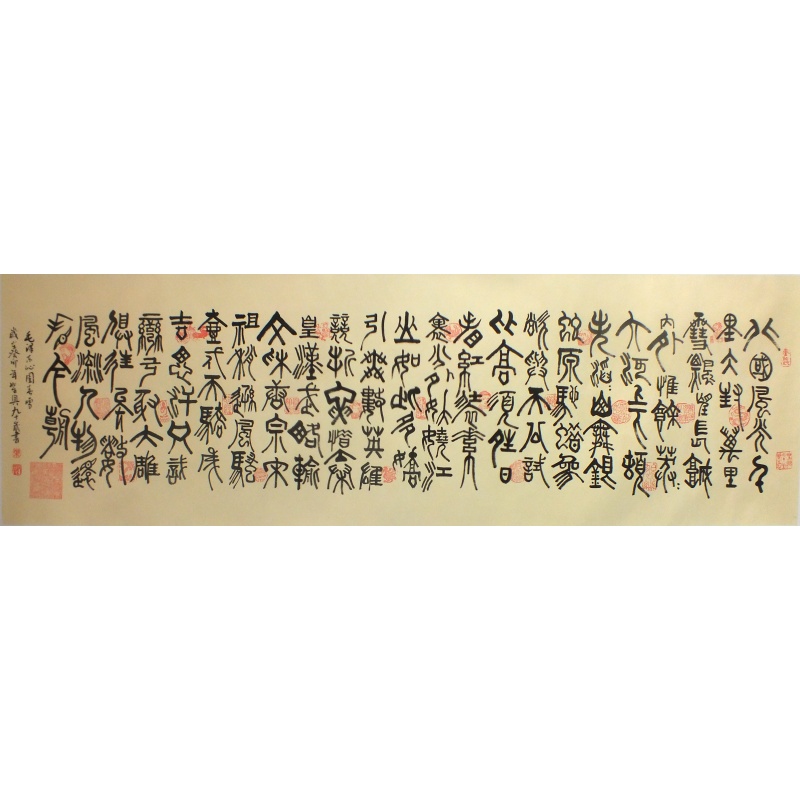 北國風光千
里冰封萬里
雪飄望長城
內外惟餘莽〻
大河上下頓
失滔〻山舞銀
蛇原馳蠟象
欲與天公試
比高須晴日
看紅裝素
裹分外妖嬈江
山如此多嬌
引無數英雄
競折腰惜秦
皇漢武略輸
文采唐宗宋
祖稍遜風騷
壹代天驕成
吉思汗只識
彎弓射大雕
俱往矣數
風流人物還
看今朝
毛澤東沁園春雪
歲癸卯年書